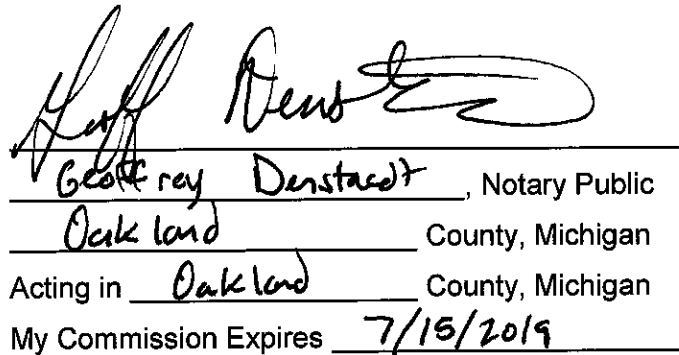 Geoffrey Denstaedt, Notary Public
Oakland County, Michigan
Acting in Oakland County, Michigan
My Commission Expires 7/15/2019